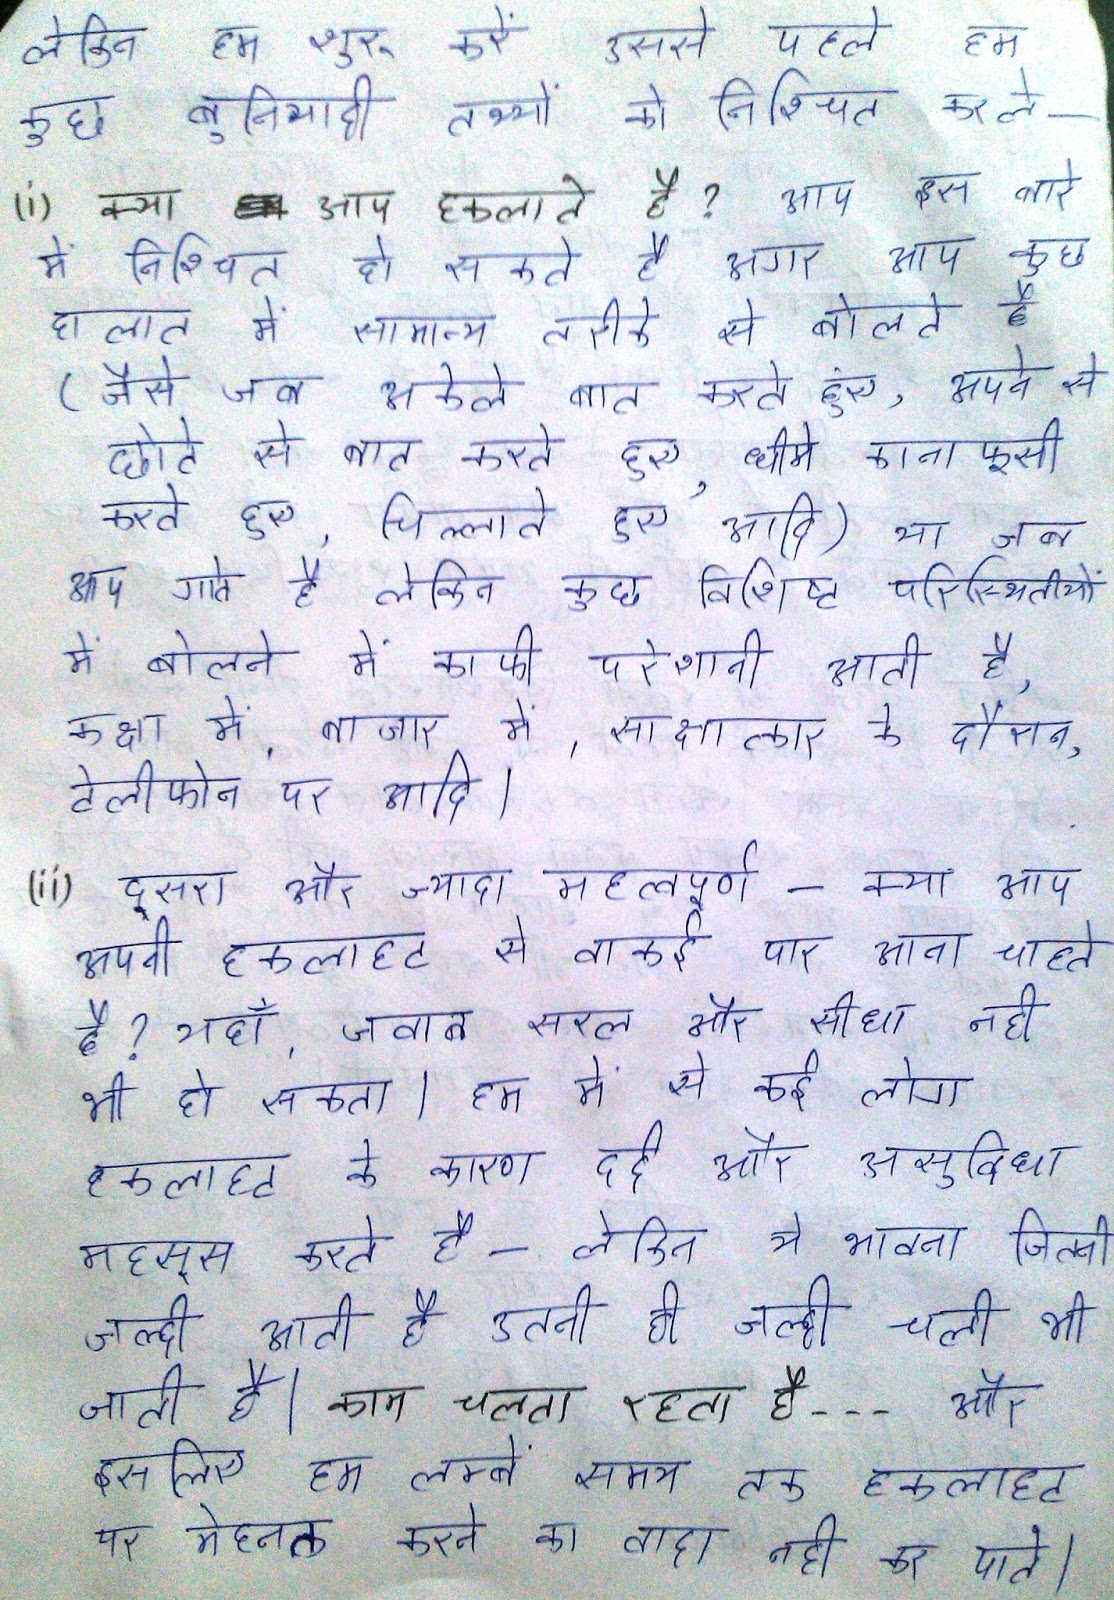 लेकिन हम शुरू करें उससे पहले हम
कुछ बुनियादी तथ्यों को निश्चित करले—
(i) क्या आप हकलाते है? आप इस बारे
में निश्चित हो सकते है अगर आप कुछ
हालात में सामान्य तरीके से बोलते है
(जैसे जब अकेले बात करते हुए, अपने से
छोटे से बात करते हुए, धीमे काना फूसी
करते हुए, चिल्लाते हुए आदि) या जब
आप गाते है लेकिन कुछ विशिष्ट परिस्थितीयों
में बोलने में काफी परेशानी आती है,
कक्षा में, बाजार में, साक्षात्कार के दौरान,
टेलीफोन पर आदि।
(ii) दूसरा और ज्यादा महत्वपूर्ण - क्या आप
अपनी हकलाहट से वाकई पार आना चाहते
है? यहाँ, जवाब सरल और सीधा नही
भी हो सकता। हम में से कई लोग
हकलाहट के कारण दर्द और असुविधा
महसूस करते है - लेकिन ये भावना जितनी
जल्दी आती है उतनी ही जल्दी चली भी
जाती है। काम चलता रहता है--- और
इसलिए हम लम्बें समय तक हकलाहट
पर मेहनत करने का वादा नही कर पाते।